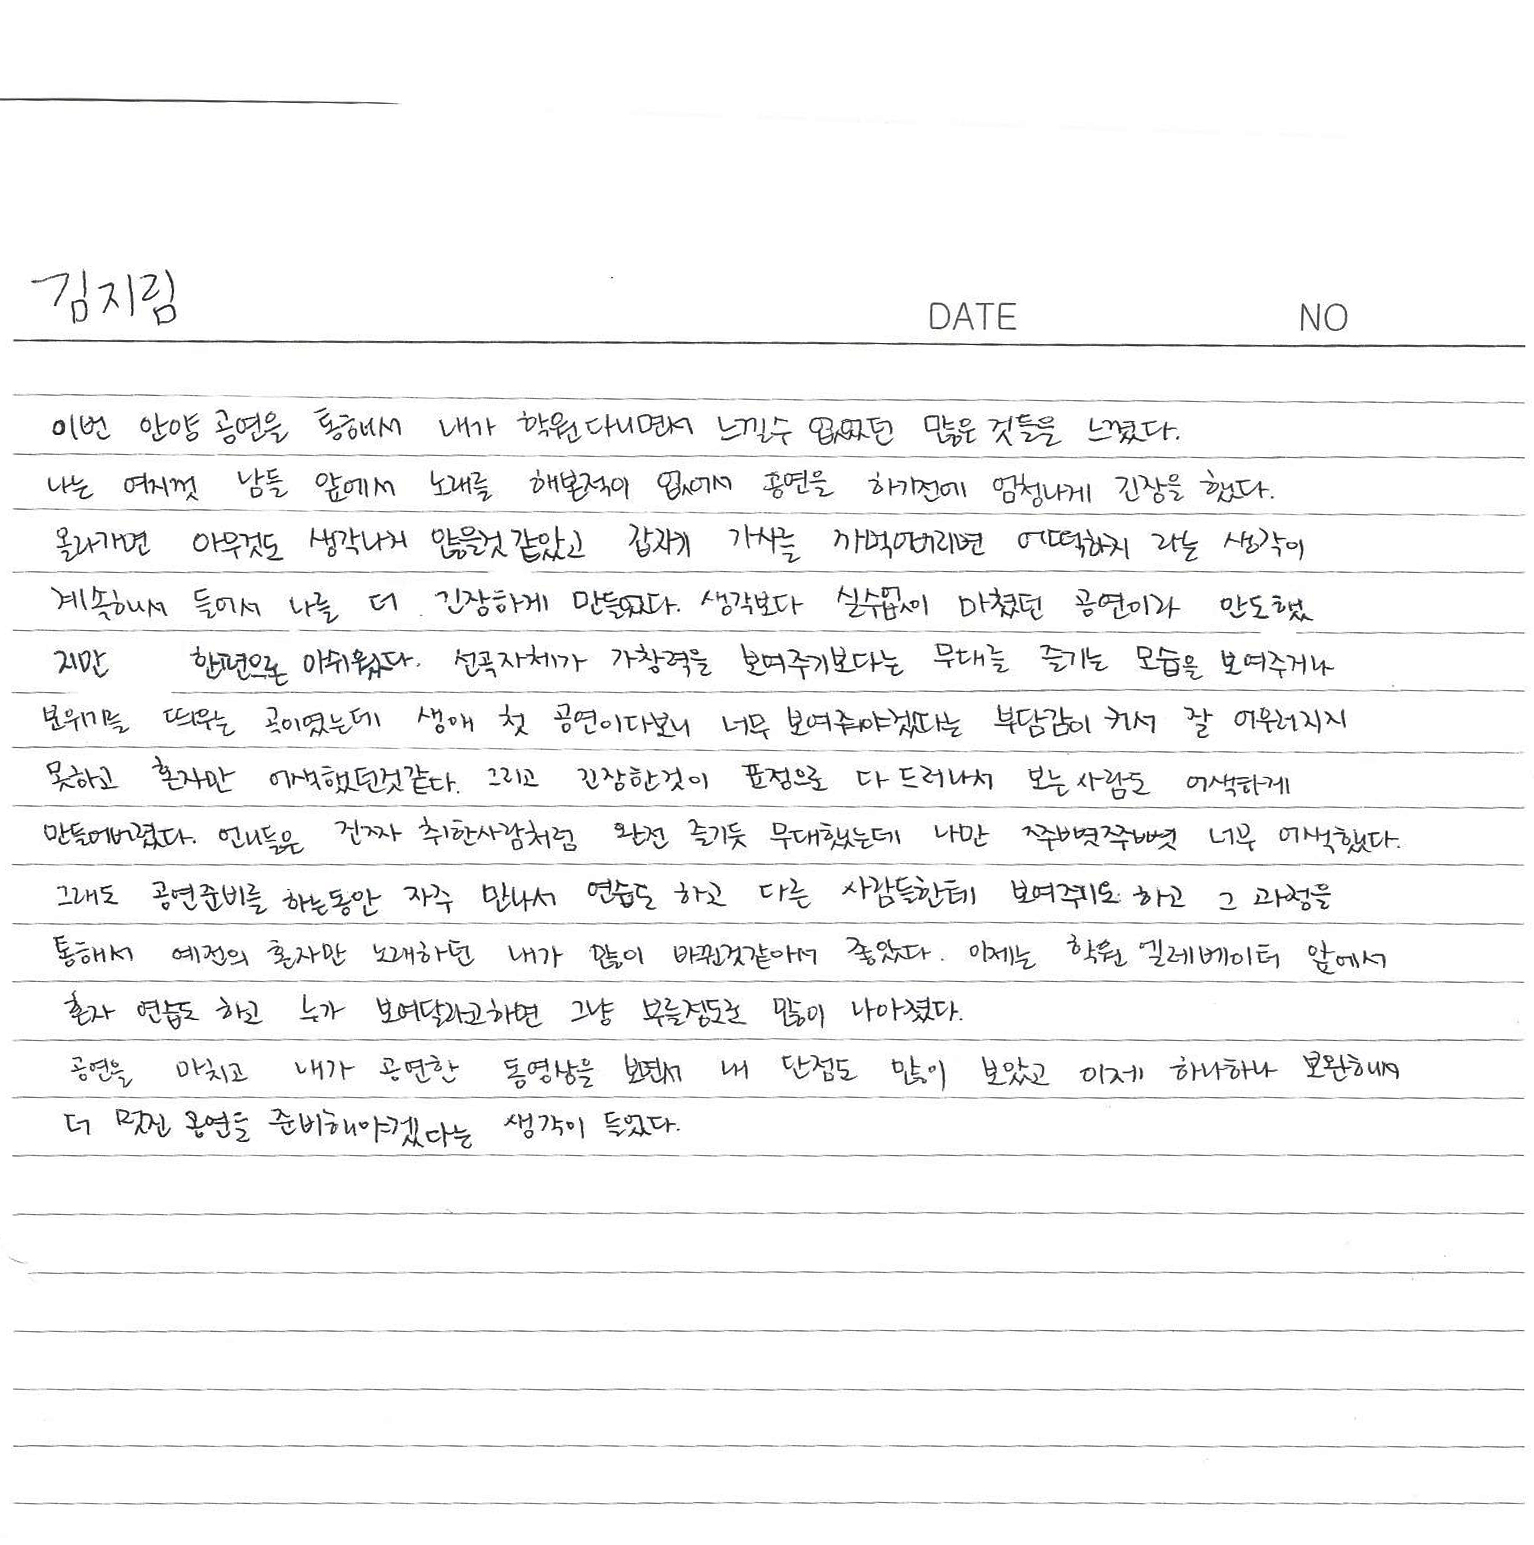 김지림
DATE NO
이번 안양 공연을 통해서 내가 학원다니면서 느낄수 없었던 많은 것들을 느꼈다.
나는 여지껏 남들 앞에서 노래를 해본적이 없어서 공연을 하기전에 엄청나게 긴장을 했다.
올라가면 아무것도 생각나지 않을것 같았고 갑자기 가사를 까먹어버리면 어떡하지 라는 생각이
계속해서 들어서 나를 더 긴장하게 만들었다. 생각보다 실수없이 마쳤던 공연이라 안도했
지만 한편으론 아쉬웠다. 선곡자체가 가창력을 보여주기보다는 무대를 즐기는 모습을 보여주거나
분위기를 띄우는 곡이였는데 생애 첫 공연이다보니 너무 보여줘야겠다는 부담감이 커서 잘 어우러지지
못하고 혼자만 어색했던것같다. 그리고 긴장한것이 표정으로 다 드러나서 보는 사람도 어색하게
만들어버렸다. 언니들은 진짜 취한사람처럼 완전 즐기듯 무대했는데 나만 쭈뼛쭈뼛 너무 어색했다.
그래도 공연준비를 하는동안 자주 만나서 연습도 하고 다른 사람들한테 보여주기도 하고 그 과정을
통해서 예전의 혼자만 노래하던 내가 많이 바뀐것같아서 좋았다. 이제는 학원 엘레베이터 앞에서
혼자 연습도 하고 누가 보여달라고하면 그냥 부를정도로 많이 나아졌다.
공연을 마치고 내가 공연한 동영상을 보면서 내 단점도 많이 보았고 이제 하나하나 보완해서
더 멋진 공연을 준비해야겠다는 생각이 들었다.